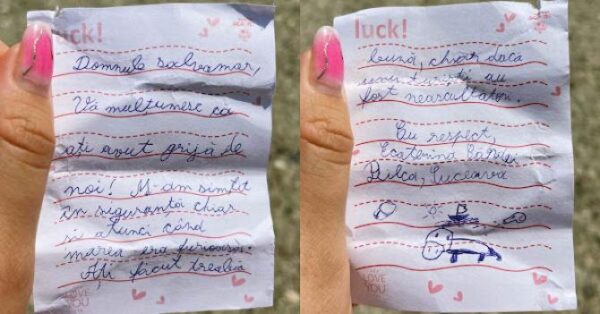 uck!
Domnule salvamar,
Vă mulțumesc că
ați avut grijă de
noi! M-am simțit
în siguranță chiar
și atunci când
marea era furioasă.
Ați făcut treaba
LOVE
YOU
luck!
bună, chiar dacă
unii turiști au
fost neascultători.
Cu respect,
Ecaterina
Suceava
LOVE
YOU